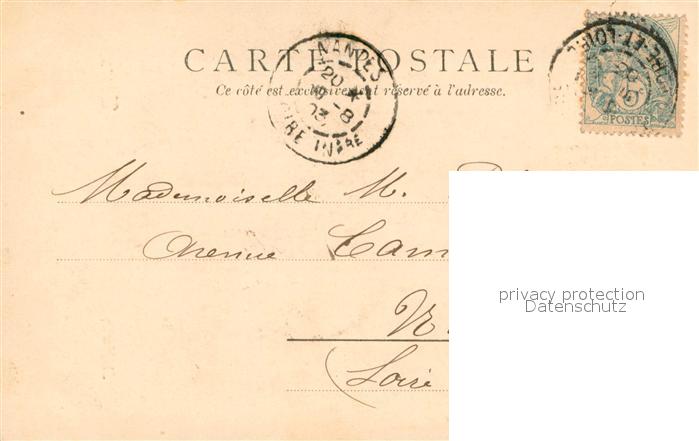 CARTE POSTALE
Ce côté est exclusivement réservé à l'adresse.
NANTES
20
8
03
LOIRE INFRE
ET-LOIR
POSTES
Mademoiselle M.
Avenue Cam
(Loire
privacy protection
Datenschutz